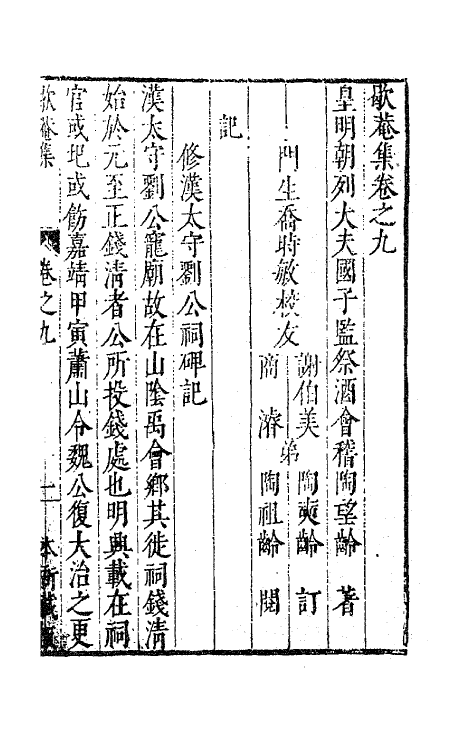 歇菴集卷之九
皇明朝列大夫國子監祭酒會稽陶望齡 著
門生喬時敏校友
謝伯美
商 濬
弟
陶奭齡 訂
陶祖齡 閱
記
修漢太守劉公祠碑記
漢太守劉公寵廟故在山陰禹會鄉其徙祠錢清
始於元至正錢清者公所投錢處也明興載在祠
官或圮或飭嘉靖甲寅蕭山令魏公復大治之更
歇菴集
卷之九
一